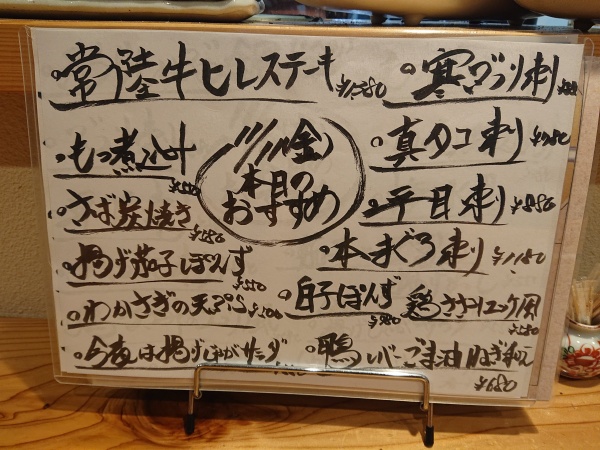 常陸牛ヒレステーキ ¥1,380
もつ煮込み
さば炭焼き
揚げ茄子ぽんず
わかさぎの天ぷら
今夜は揚げじゃがサラダ
11/11(金)
本日の
おすすめ
寒ぶり刺
真タコ刺
平目刺 ¥880
本まぐろ刺 ¥1,180
白子ぽんず ¥980
鶏ささみユッケ風
鴨レバーごま油ねぎ和え ¥680